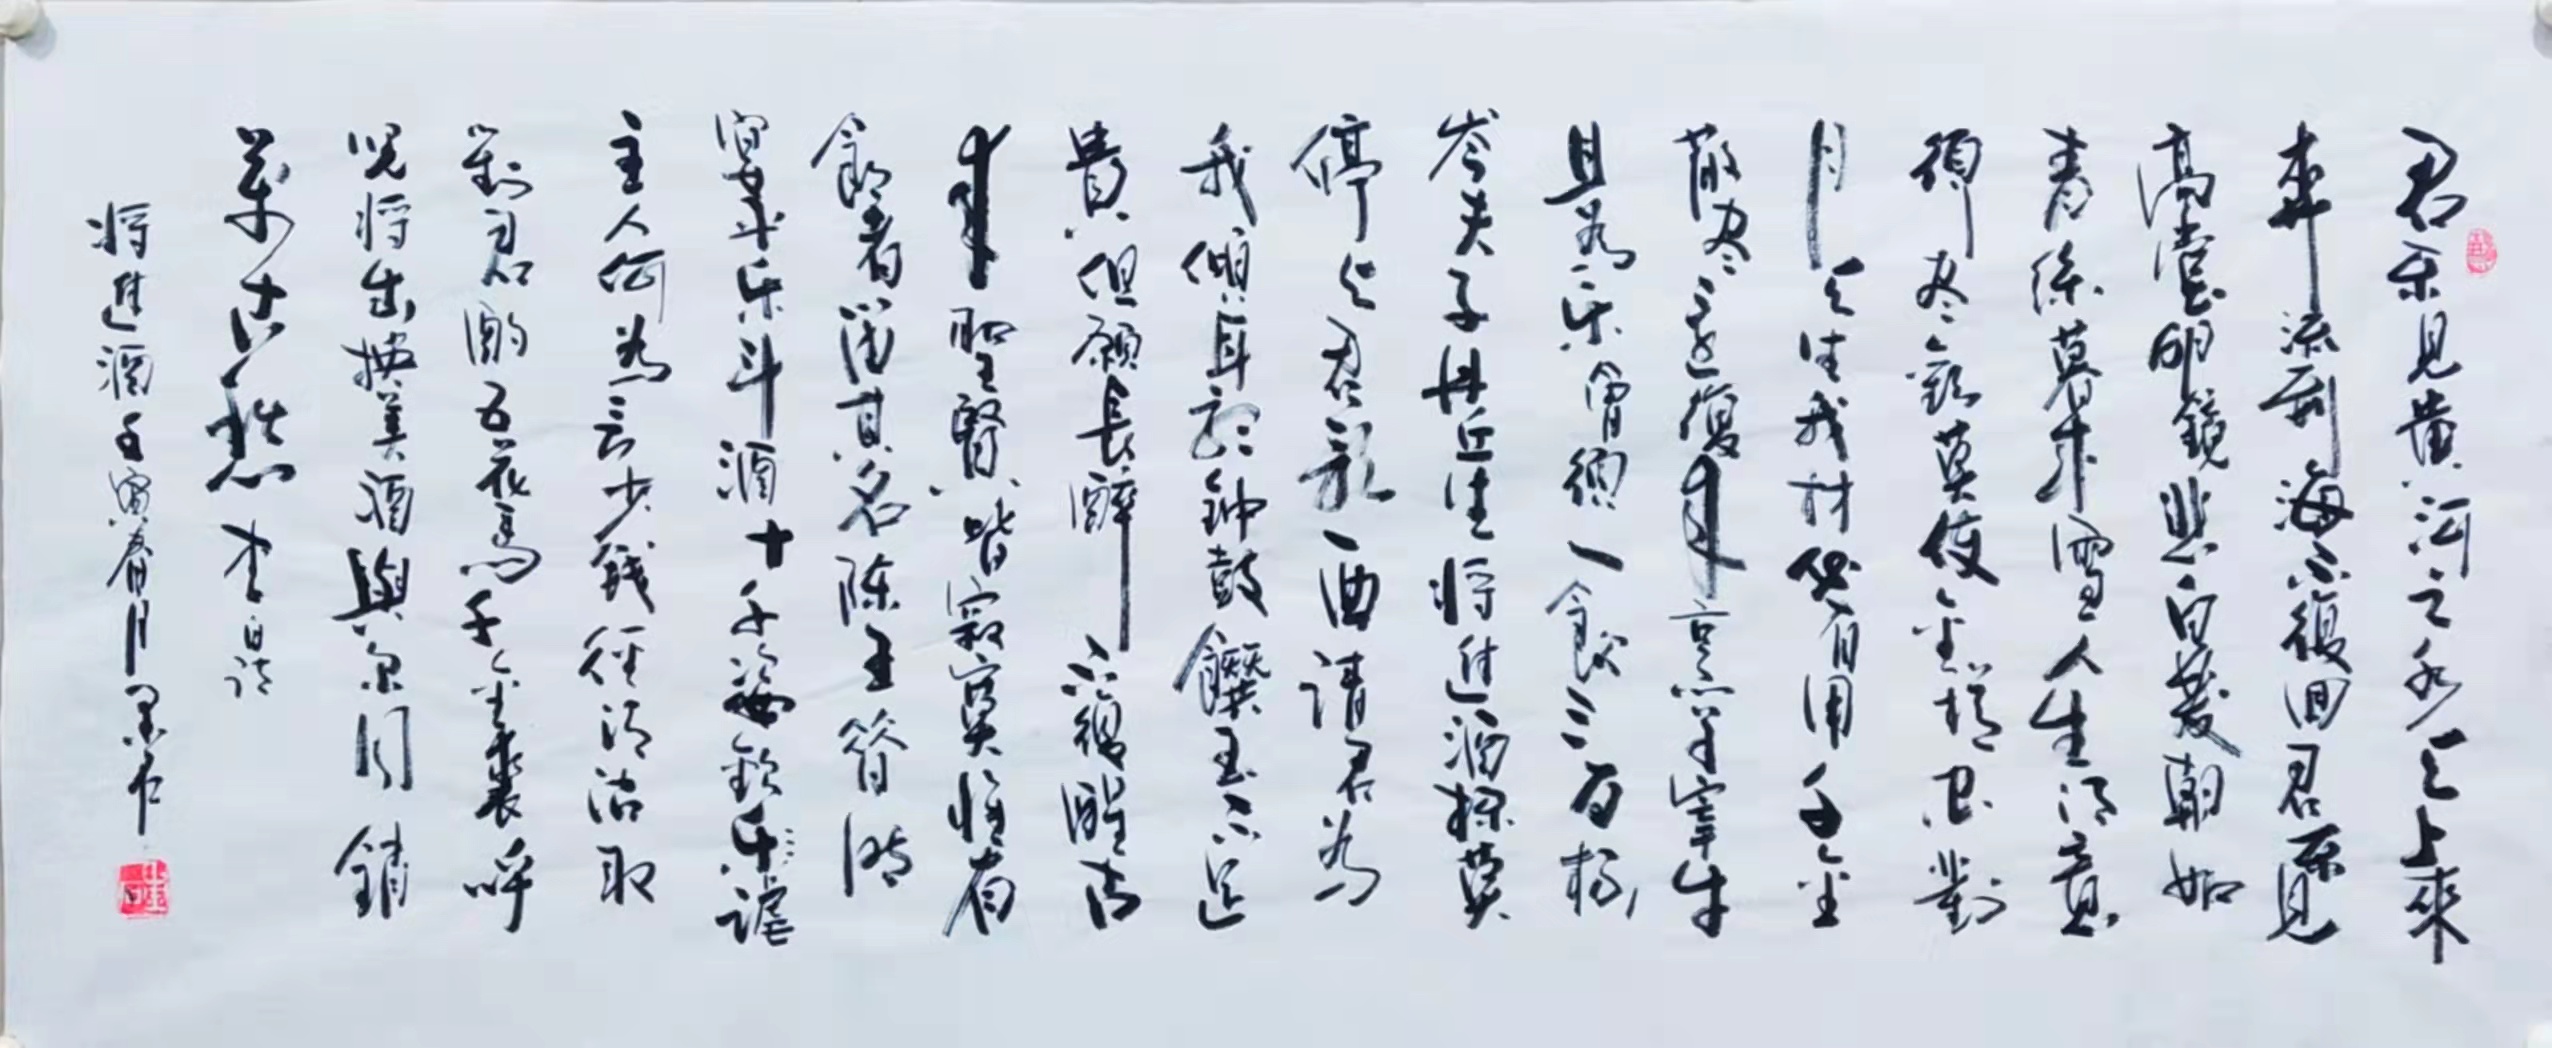 君不见黄河之水天上來
奔流到海不復回君不見
高堂明鏡悲白髮朝如
青絲暮成雪人生得意
須尽歡莫使金樽空對
月天生我材必有用千金
散尽還復来烹羊宰牛
且為乐會須一飲三百杯
岑夫子丹丘生將進酒杯莫
停与君歌一曲請君為
我傾耳聽钟鼓饌玉不足
貴但願長醉不復醒古
来聖賢皆寂寞惟有
飲者留其名陈王昔時
宴平乐斗酒十千恣歡乐謔
主人何為言少錢徑須沽取
對君酌五花馬千金裘呼
児将出換美酒與尔同銷
萬古愁 李白诗
將進酒壬寅春月